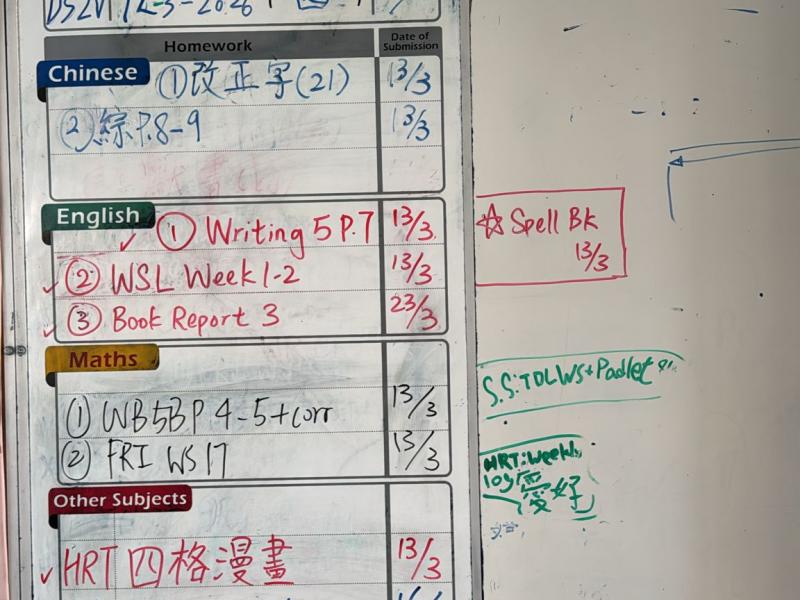 12-3-2026
Homework
Date of Submission
Chinese ①改正字(21) 13/3
②綜P.8-9 13/3
English ① Writing 5 P.7 13/3
② WSL Week 1-2 13/3
③ Book Report 3 23/3
☆ Spell Bk
13/3
Maths
① WB5B P.4-5+corr 13/3
② FRI WS 17 13/3
S.S:TDLWS+Padlet
HRT:Weekly
log
愛好
Other Subjects
HRT 四格漫畫 13/3